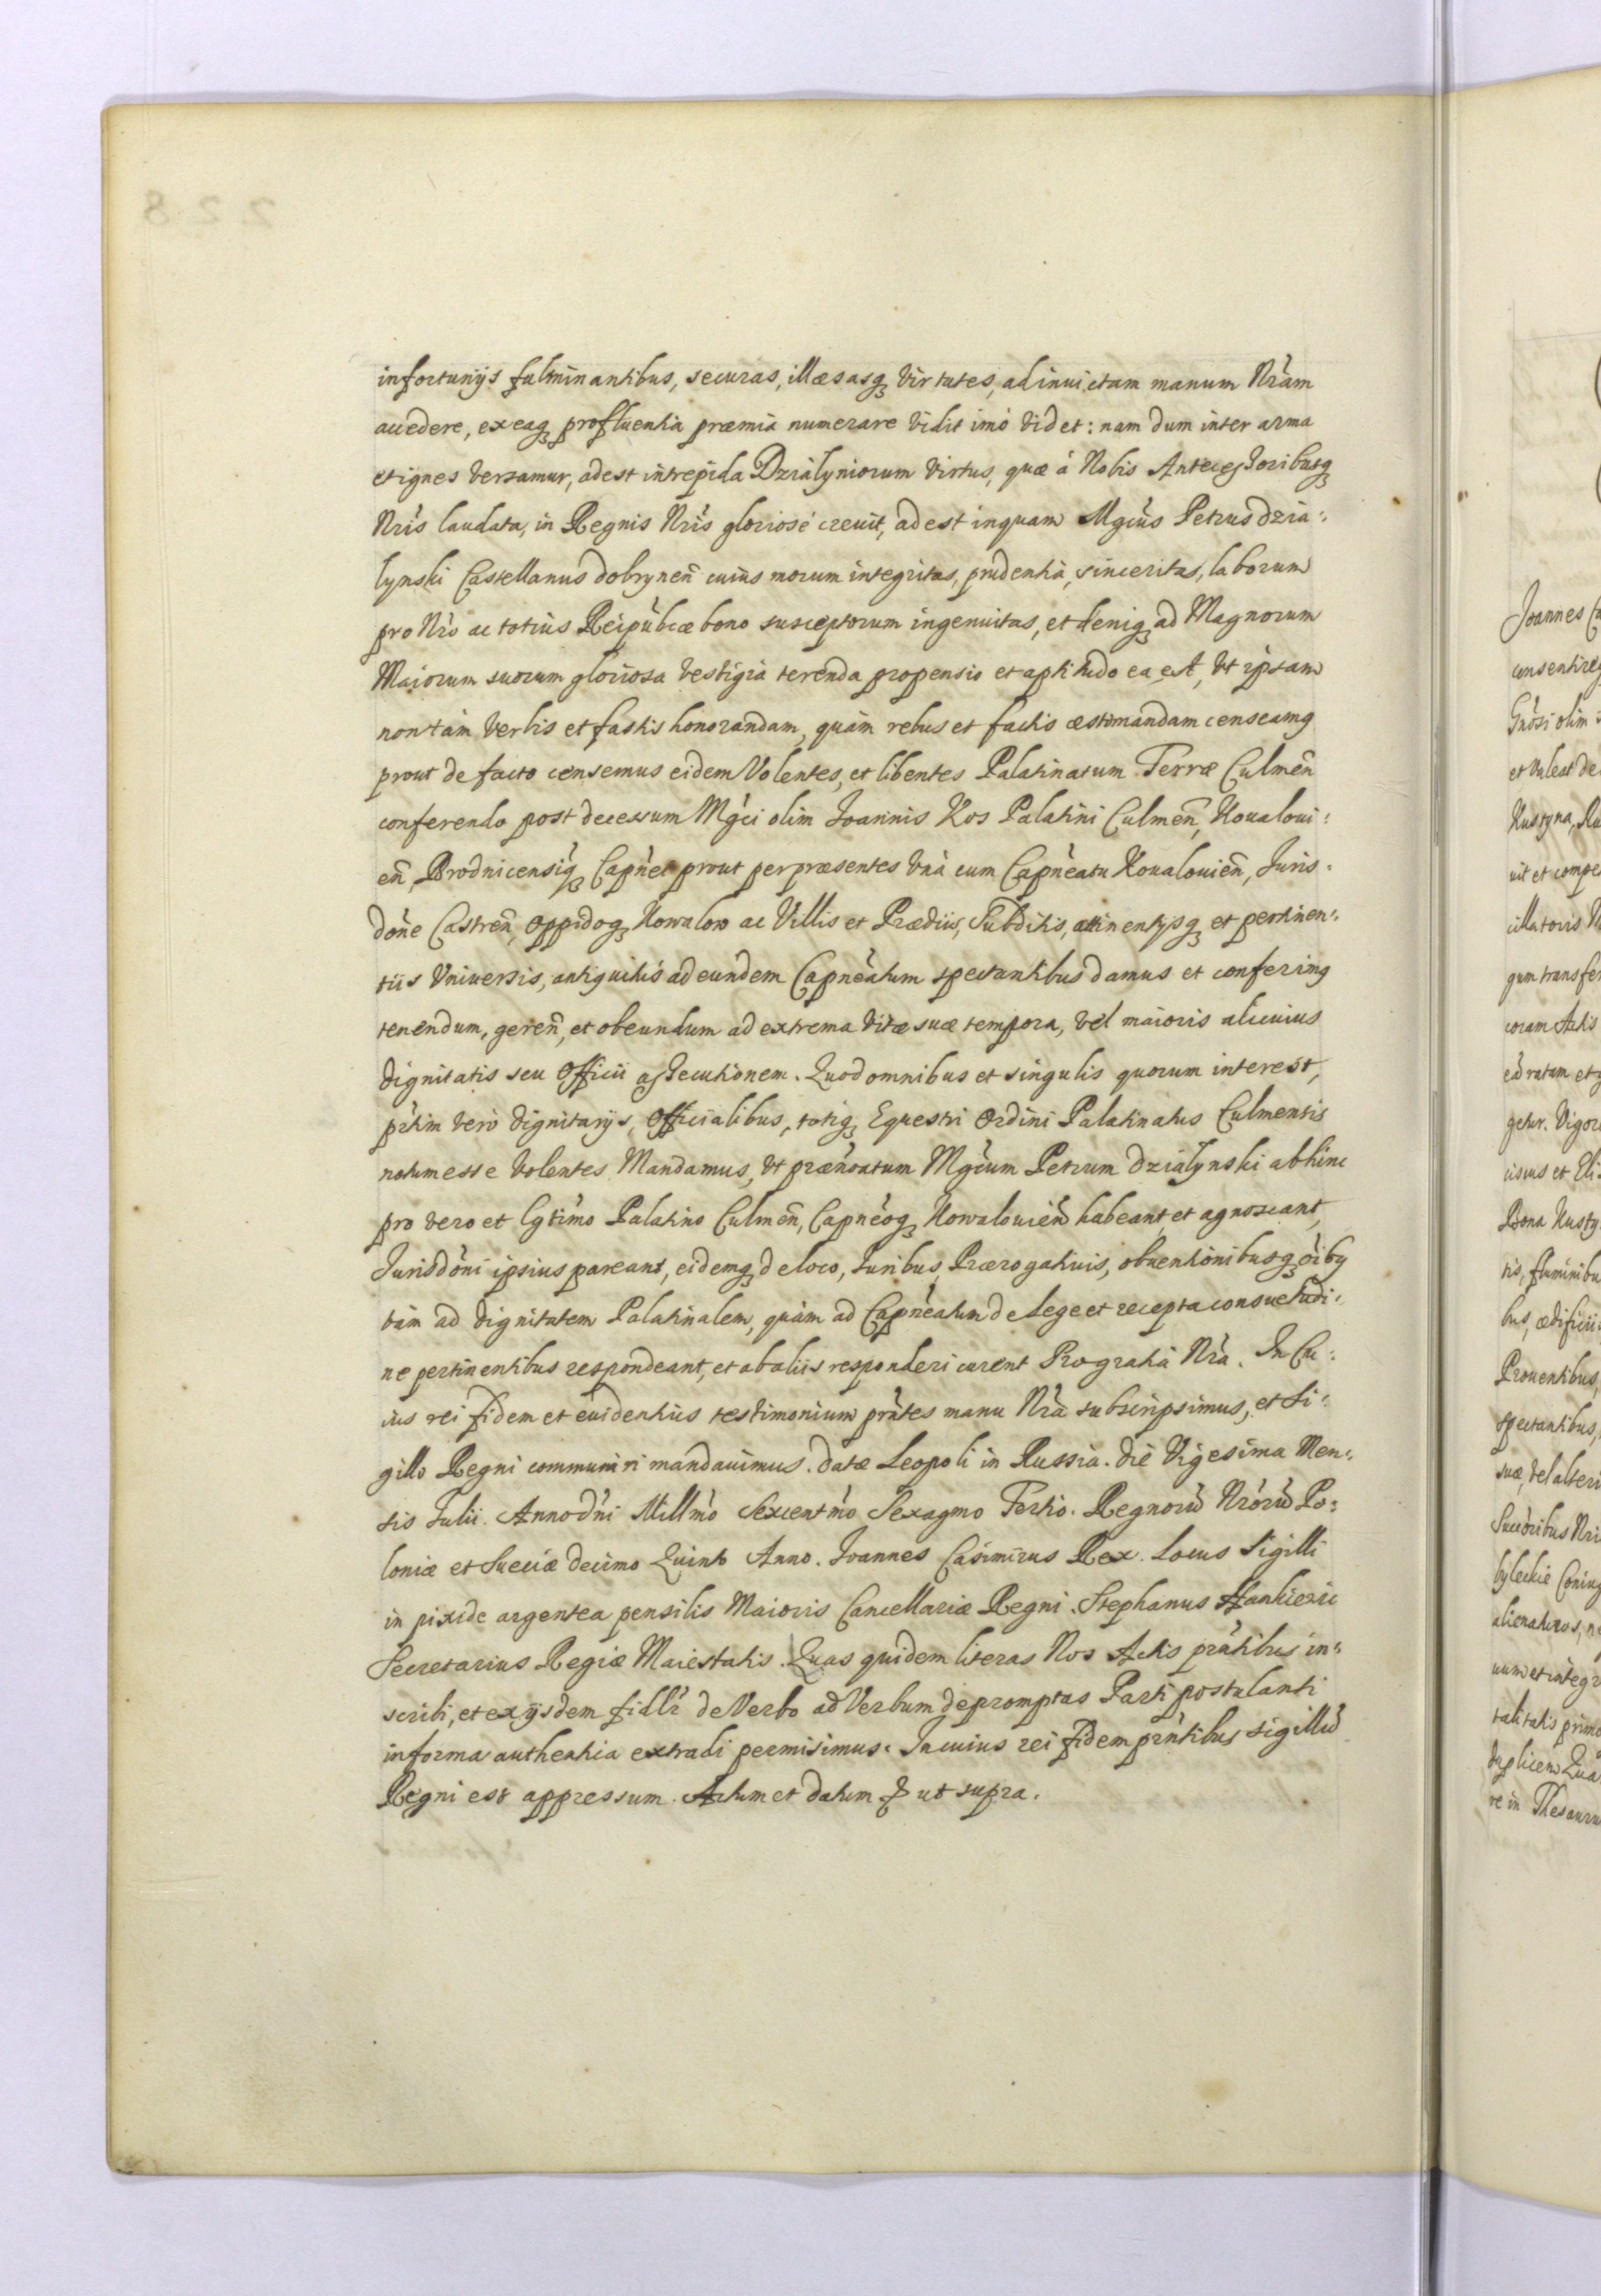 infortunijs fulminantibus, securas, illæsasq₃ Virtutes, ad inuictam manum Nr̃am
accedere, ex eaq₃ profluentia præmia numerare Vidit imò Videt: nam dum inter arma
et ignes Versamur, adest intrepida Dzialyniorum Virtus, quæ à Nobis Antecessoribusq₃
Nr̃is laudata, in Regnis Nr̃is gloriosè creuit, adest inquam Mgcus Petrus dzia:
lynski Castellanus dobrynen̄ cuius morum integritas, prudentia, sinceritas, laborum
pro Nr̃o ac totius Reipubcæ bono susceptorum ingenuitas, et deniq₃ ad Magnorum
Maiorum suorum gloriosa Vestigia terenda propensio et aptitudo ea est, Vt ipsam
non tàm Verbis et fastis honorandam, quàm rebus et factis æstimandam censeamq
prout de facto censemus eidem Volentes, et libentes Palatinatum Terræ Culmen̄
conferendo post decessum Mgci olim Joannis Kos Palatini Culmen̄, Koualoui:
en̄, Brodnicensiq₃ Capnei prout per præsentes Vnà cum Capneatu Koualouien̄, Juris:
done Castren̄, Oppidoq₃ Kowalow ac Villis et Prædiis, Subditis, attinentijsq₃ et pertinen:
tiis Vniuersis, antiquitùs ad eundem Capneatum spectantibus damus et conferimq
tenendum, geren̄, et obeundum ad extrema Vitæ suæ tempora, Vel maioris alicuius
dignitatis seu Officii assecutionem. Quod omnibus et singulis quorum interest,
prtim Verò dignitarijs, Officialibus, totiq₃ Equestri Ordini Palatinatus Culmensis
notum esse Volentes Mandamus, Vt prænoatum Mgcum Petrum dzialynski abhinc
pro Vero et lgtimo Palatino Culmen̄, Capneoq₃ Kowalouien̄ habeant, et agnoscant,
Jurisdoni ipsius pareant, eidemq₃ de loco, Juribus, Prærogatiuis, obuentionibusq₃ oibq
tàm ad dignitatem Palatinalem, quàm ad Capneatum de Lege et recepta consuetudi:
ne pertinentibus respondeant, et ab aliis responderi curent Pro gratia Nr̃a. In Cu:
ius rei fidem et euidentius testimonium prntes manu Nr̃a subscripsimus, et Si:
gillo Regni communiri mandauimus. datæ Leopoli in Russia. die Vigesima Men:
sis Julii. Anno dni Millmo Sexcentmo Sexagmo Tertio. Regnorũ Nr̃orũ Po:
loniæ et Sueciæ decimo Quinto Anno. Joannes Casimirus Rex. Locus Sigilli
in pixide argentea pensilis Maioris Cancellariæ Regni. Stephanus Hankiewic
Secretarius Regiæ Maiestatis. Quas quidem literas Nos Actis prntibus in:
scribi, et ex ijsdem fidlr de Verbo ad Verbum depromptas Parti postulanti
in forma authentica extradi permisimus. In cuius rei fidem prntibus sigillũ
Regni est appressum. Actum et datum ut supra.
228
Joannes
consentire
olim
et Valeat de
uit et compe
cillatoris
gum transfer
coram Actis
ea ratam et
getur. Vigore
cisus et Eli
Bona
tis, fluminibu
bus, ædificii
Prouentibus,
spectantibus,
suæ, Vel alteri
Succoribus Nri
alienatiuos,
uum et integr
talitatis primo
duplicem
re in Thesauru